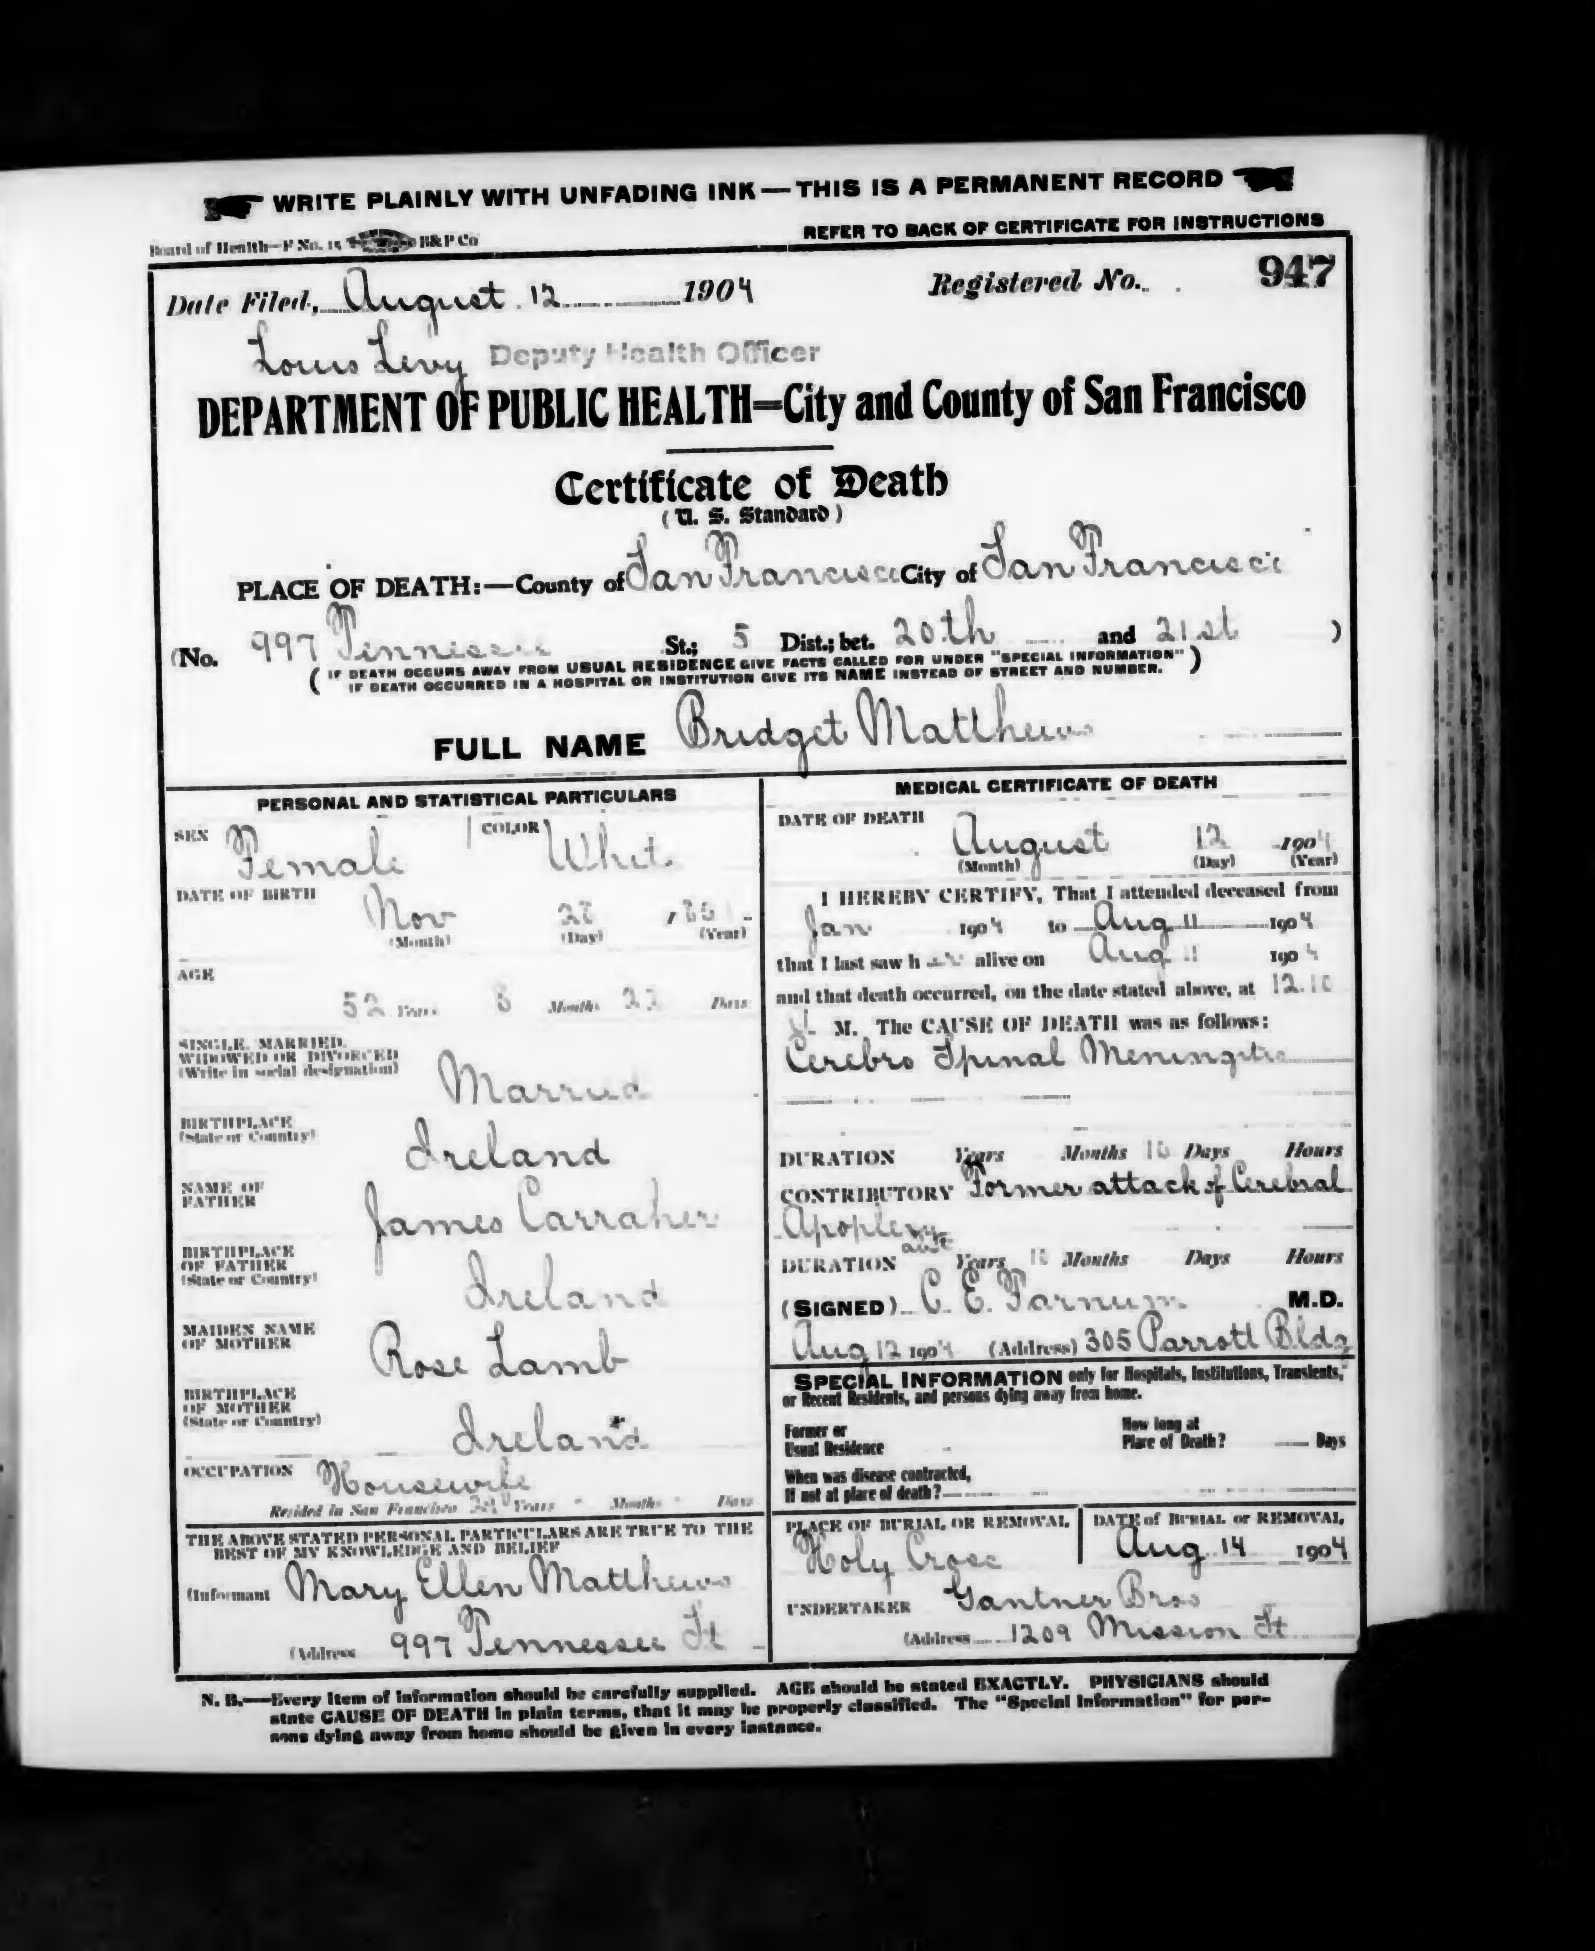 WRITE PLAINLY WITH UNFADING INK — THIS IS A PERMANENT RECORD
Board of Health—F No. 15 B&P Co
REFER TO BACK OF CERTIFICATE FOR INSTRUCTIONS
Date Filed, August 12 1904 Registered No. 947
Louis Levy Deputy Health Officer
DEPARTMENT OF PUBLIC HEALTH=City and County of San Francisco
Certificate of Death
(U. S. Standard)
PLACE OF DEATH:—County of San Francisco City of San Francisco
(No. 997 Tennessee St.; 5 Dist.; bet. 20th and 21st )
( IF DEATH OCCURS AWAY FROM USUAL RESIDENCE GIVE FACTS CALLED FOR UNDER "SPECIAL INFORMATION" )
IF DEATH OCCURRED IN A HOSPITAL OR INSTITUTION GIVE ITS NAME INSTEAD OF STREET AND NUMBER.
FULL NAME Bridget Matthews
PERSONAL AND STATISTICAL PARTICULARS
SEX Female COLOR White
DATE OF BIRTH
Nov
(Month) (Day) (Year)
AGE
52 Years 8 Months Days
SINGLE, MARRIED,
WIDOWED OR DIVORCED
(Write in social designation)
Married
BIRTHPLACE
(State or Country)
Ireland
NAME OF
FATHER
James Carraher
BIRTHPLACE
OF FATHER
(State or Country)
Ireland
MAIDEN NAME
OF MOTHER
Rose Lamb
BIRTHPLACE
OF MOTHER
(State or Country)
Ireland
OCCUPATION Housewife
Resided in San Francisco Years Months Days
THE ABOVE STATED PERSONAL PARTICULARS ARE TRUE TO THE
BEST OF MY KNOWLEDGE AND BELIEF
(Informant Mary Ellen Matthews
(Address 997 Tennessee St
MEDICAL CERTIFICATE OF DEATH
DATE OF DEATH
August 12 1904
(Month) (Day) (Year)
I HEREBY CERTIFY, That I attended deceased from
Jan 1904 to Aug 11 1904
that I last saw her alive on Aug 11 1904
and that death occurred, on the date stated above, at 12.10
M. The CAUSE OF DEATH was as follows:
Cerebro Spinal Meningitis
DURATION Years Months Days Hours
CONTRIBUTORY Former attack of Cerebral
Apoplexy
DURATION Years Months Days Hours
(SIGNED) C. E. Farnum M.D.
Aug 12 1904 (Address) 305 Parrott Bldg
SPECIAL INFORMATION only for Hospitals, Institutions, Transients,
or Recent Residents, and persons dying away from home.
Former or
Usual Residence
How long at
Place of Death? Days
When was disease contracted,
If not at place of death?
PLACE OF BURIAL OR REMOVAL
Holy Cross
DATE of BURIAL or REMOVAL
Aug 14 1904
UNDERTAKER Gantner Bros
(Address 1209 Mission St
N. B.—Every item of information should be carefully supplied. AGE should be stated EXACTLY. PHYSICIANS should
state CAUSE OF DEATH in plain terms, that it may be properly classified. The "Special Information" for per-
sons dying away from home should be given in every instance.